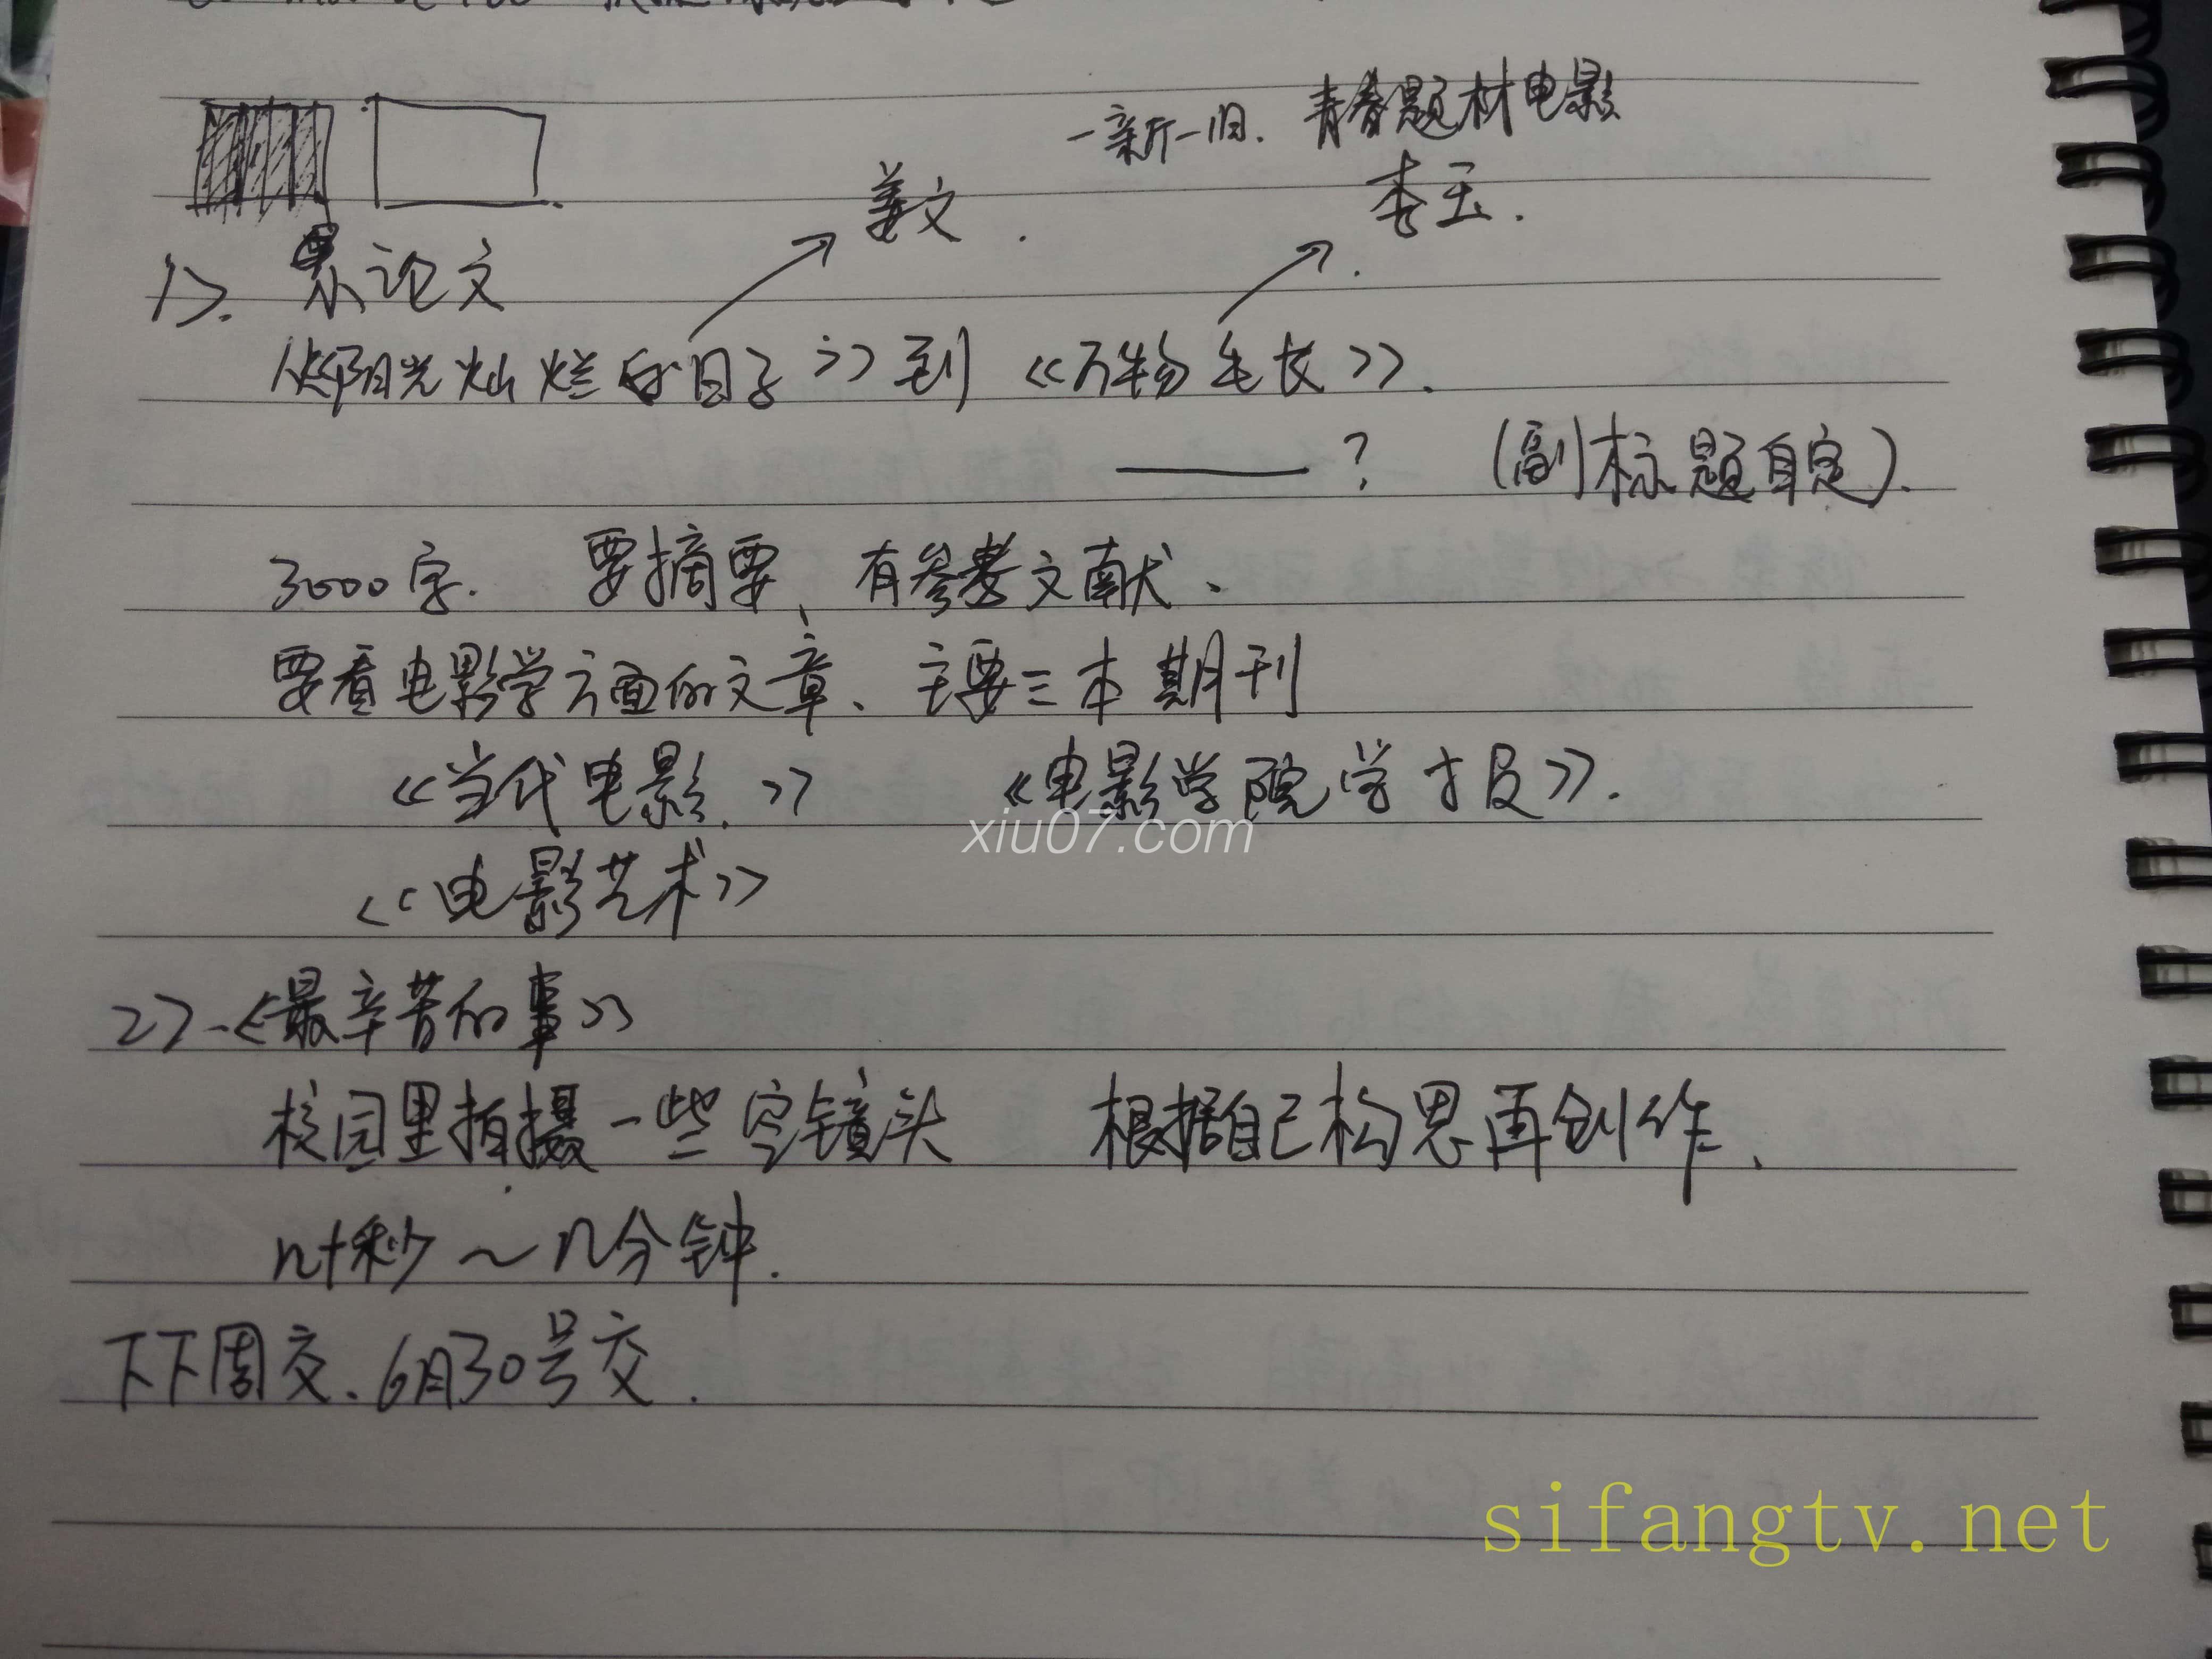 一新一旧. 青春题材电影
姜文. 李玉.
1>. 累论文
从《阳光灿烂的日子》到《万物生长》.
——? (副标题自定).
3000字. 要摘要、有参考文献、
要看电影学方面的文章、主要三本期刊
《当代电影》 《电影学院学报》.
xiu07.com
《电影艺术》
2>.《最辛苦的事》
校园里拍摄一些空镜头 根据自己构思再创作、
n十秒~n分钟.
下下周交、6月30号交.
sifangtv.net